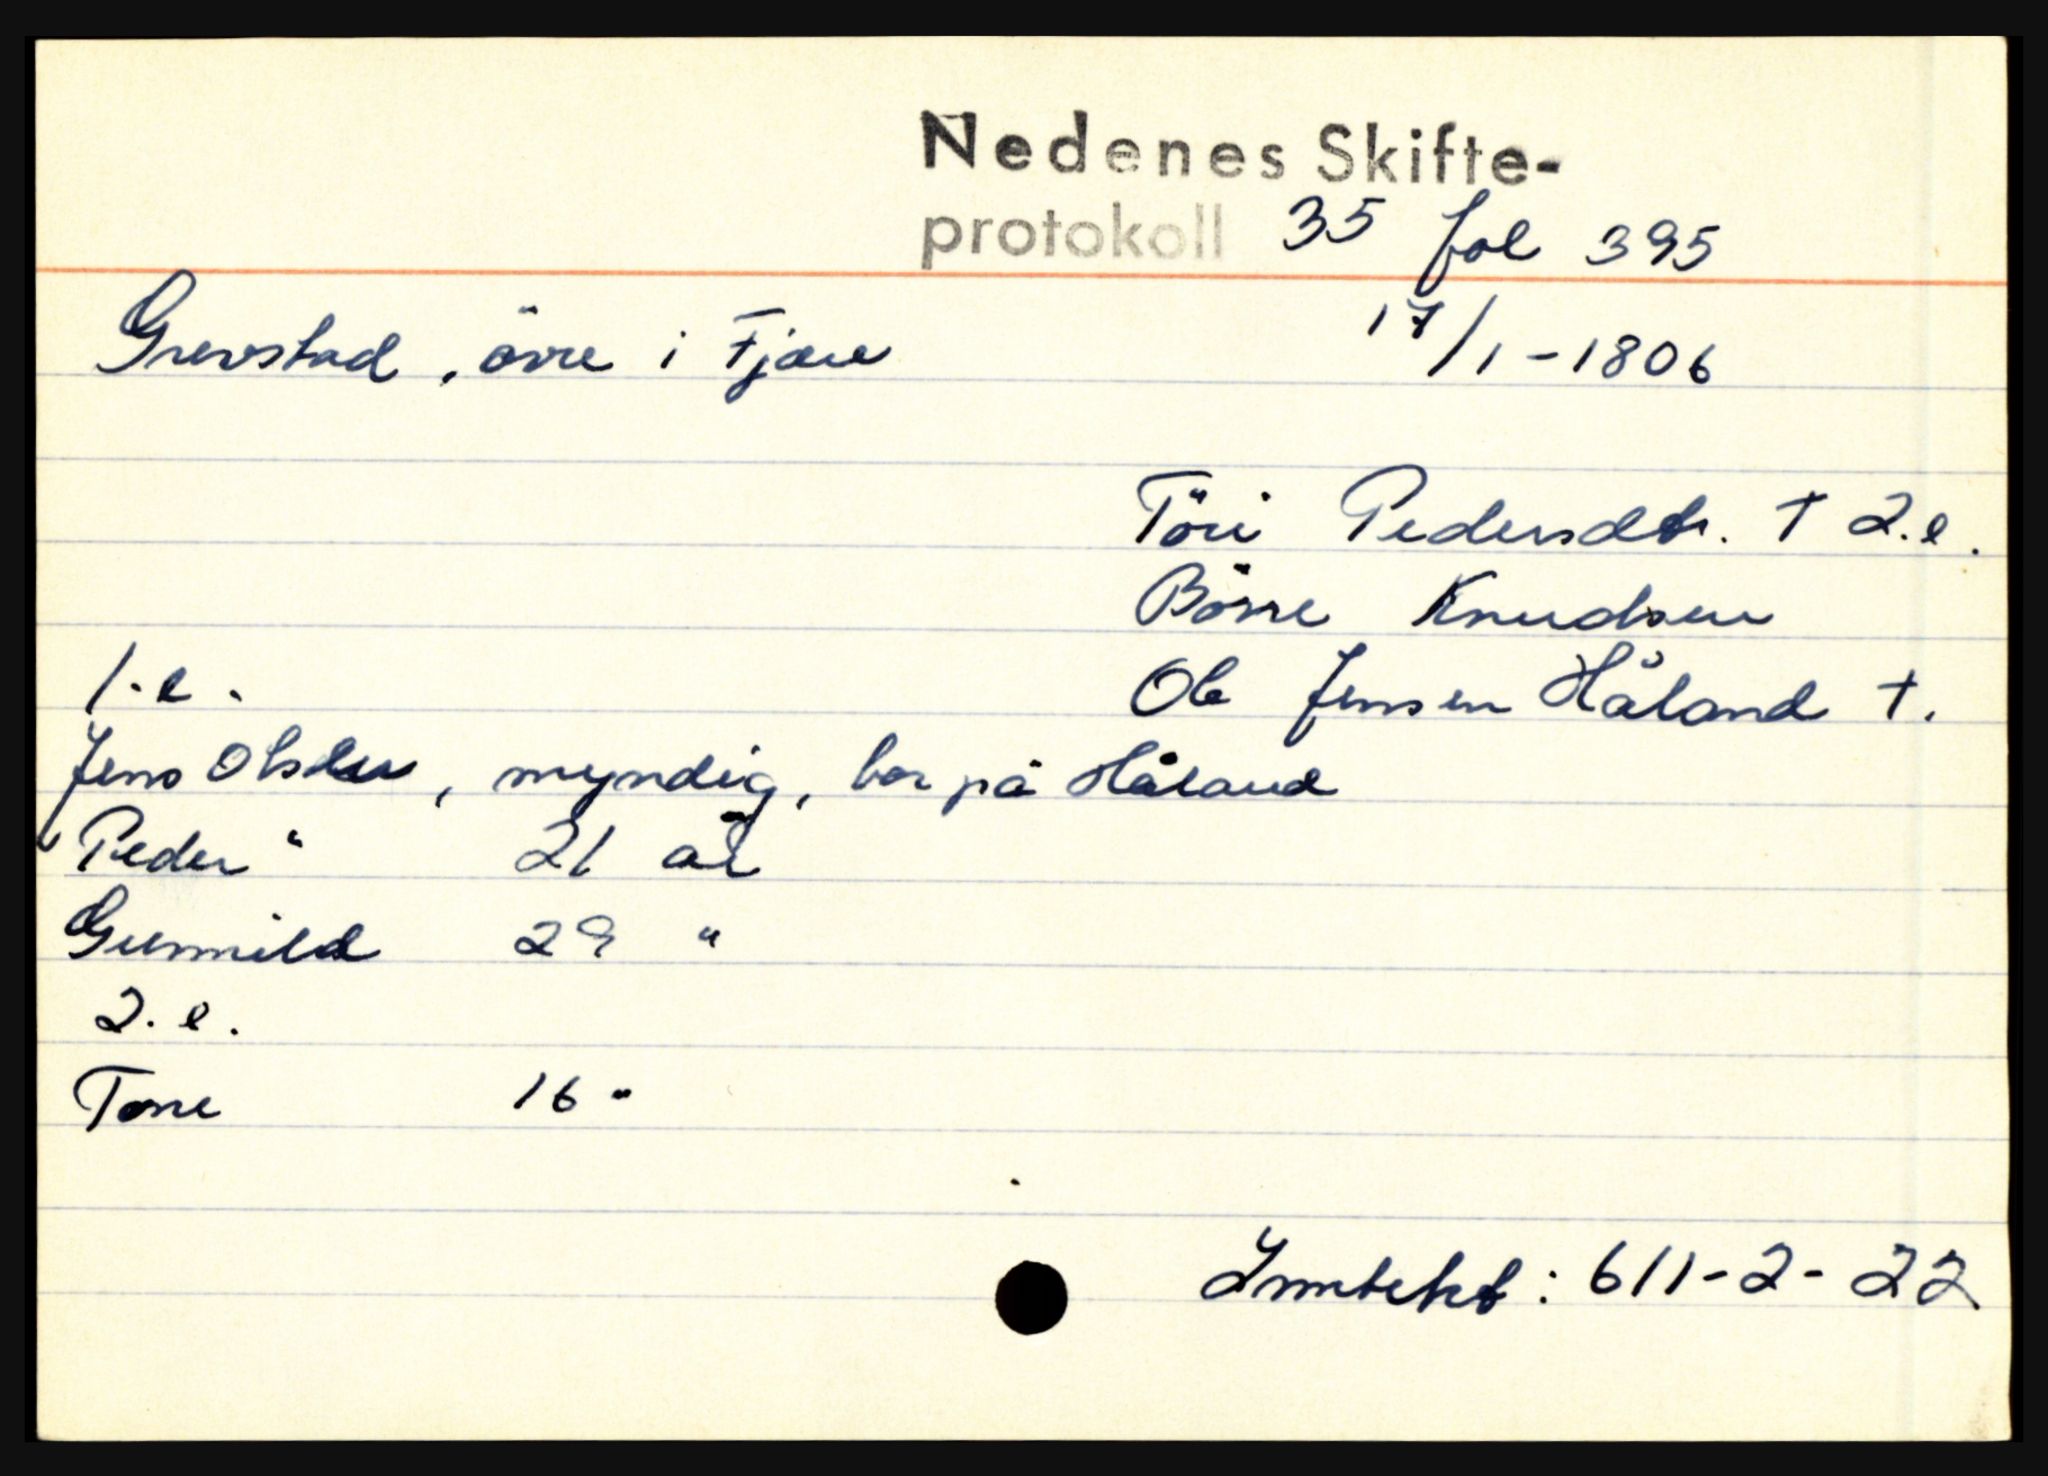 Nedenes Skifte-
protokoll 35 fol 395
Grevstad, övre i Fjære 17/1-1806
Töri Pedersdtr. † 2.e.
Börre Knudsen
1.e. Ole Jensen Håland †.
Jens Olsen, myndig, bor på Håland
Peder " 21 år
Gunnild 29 "
2.e.
Tone 16 "
Inntekt: 611-2-22